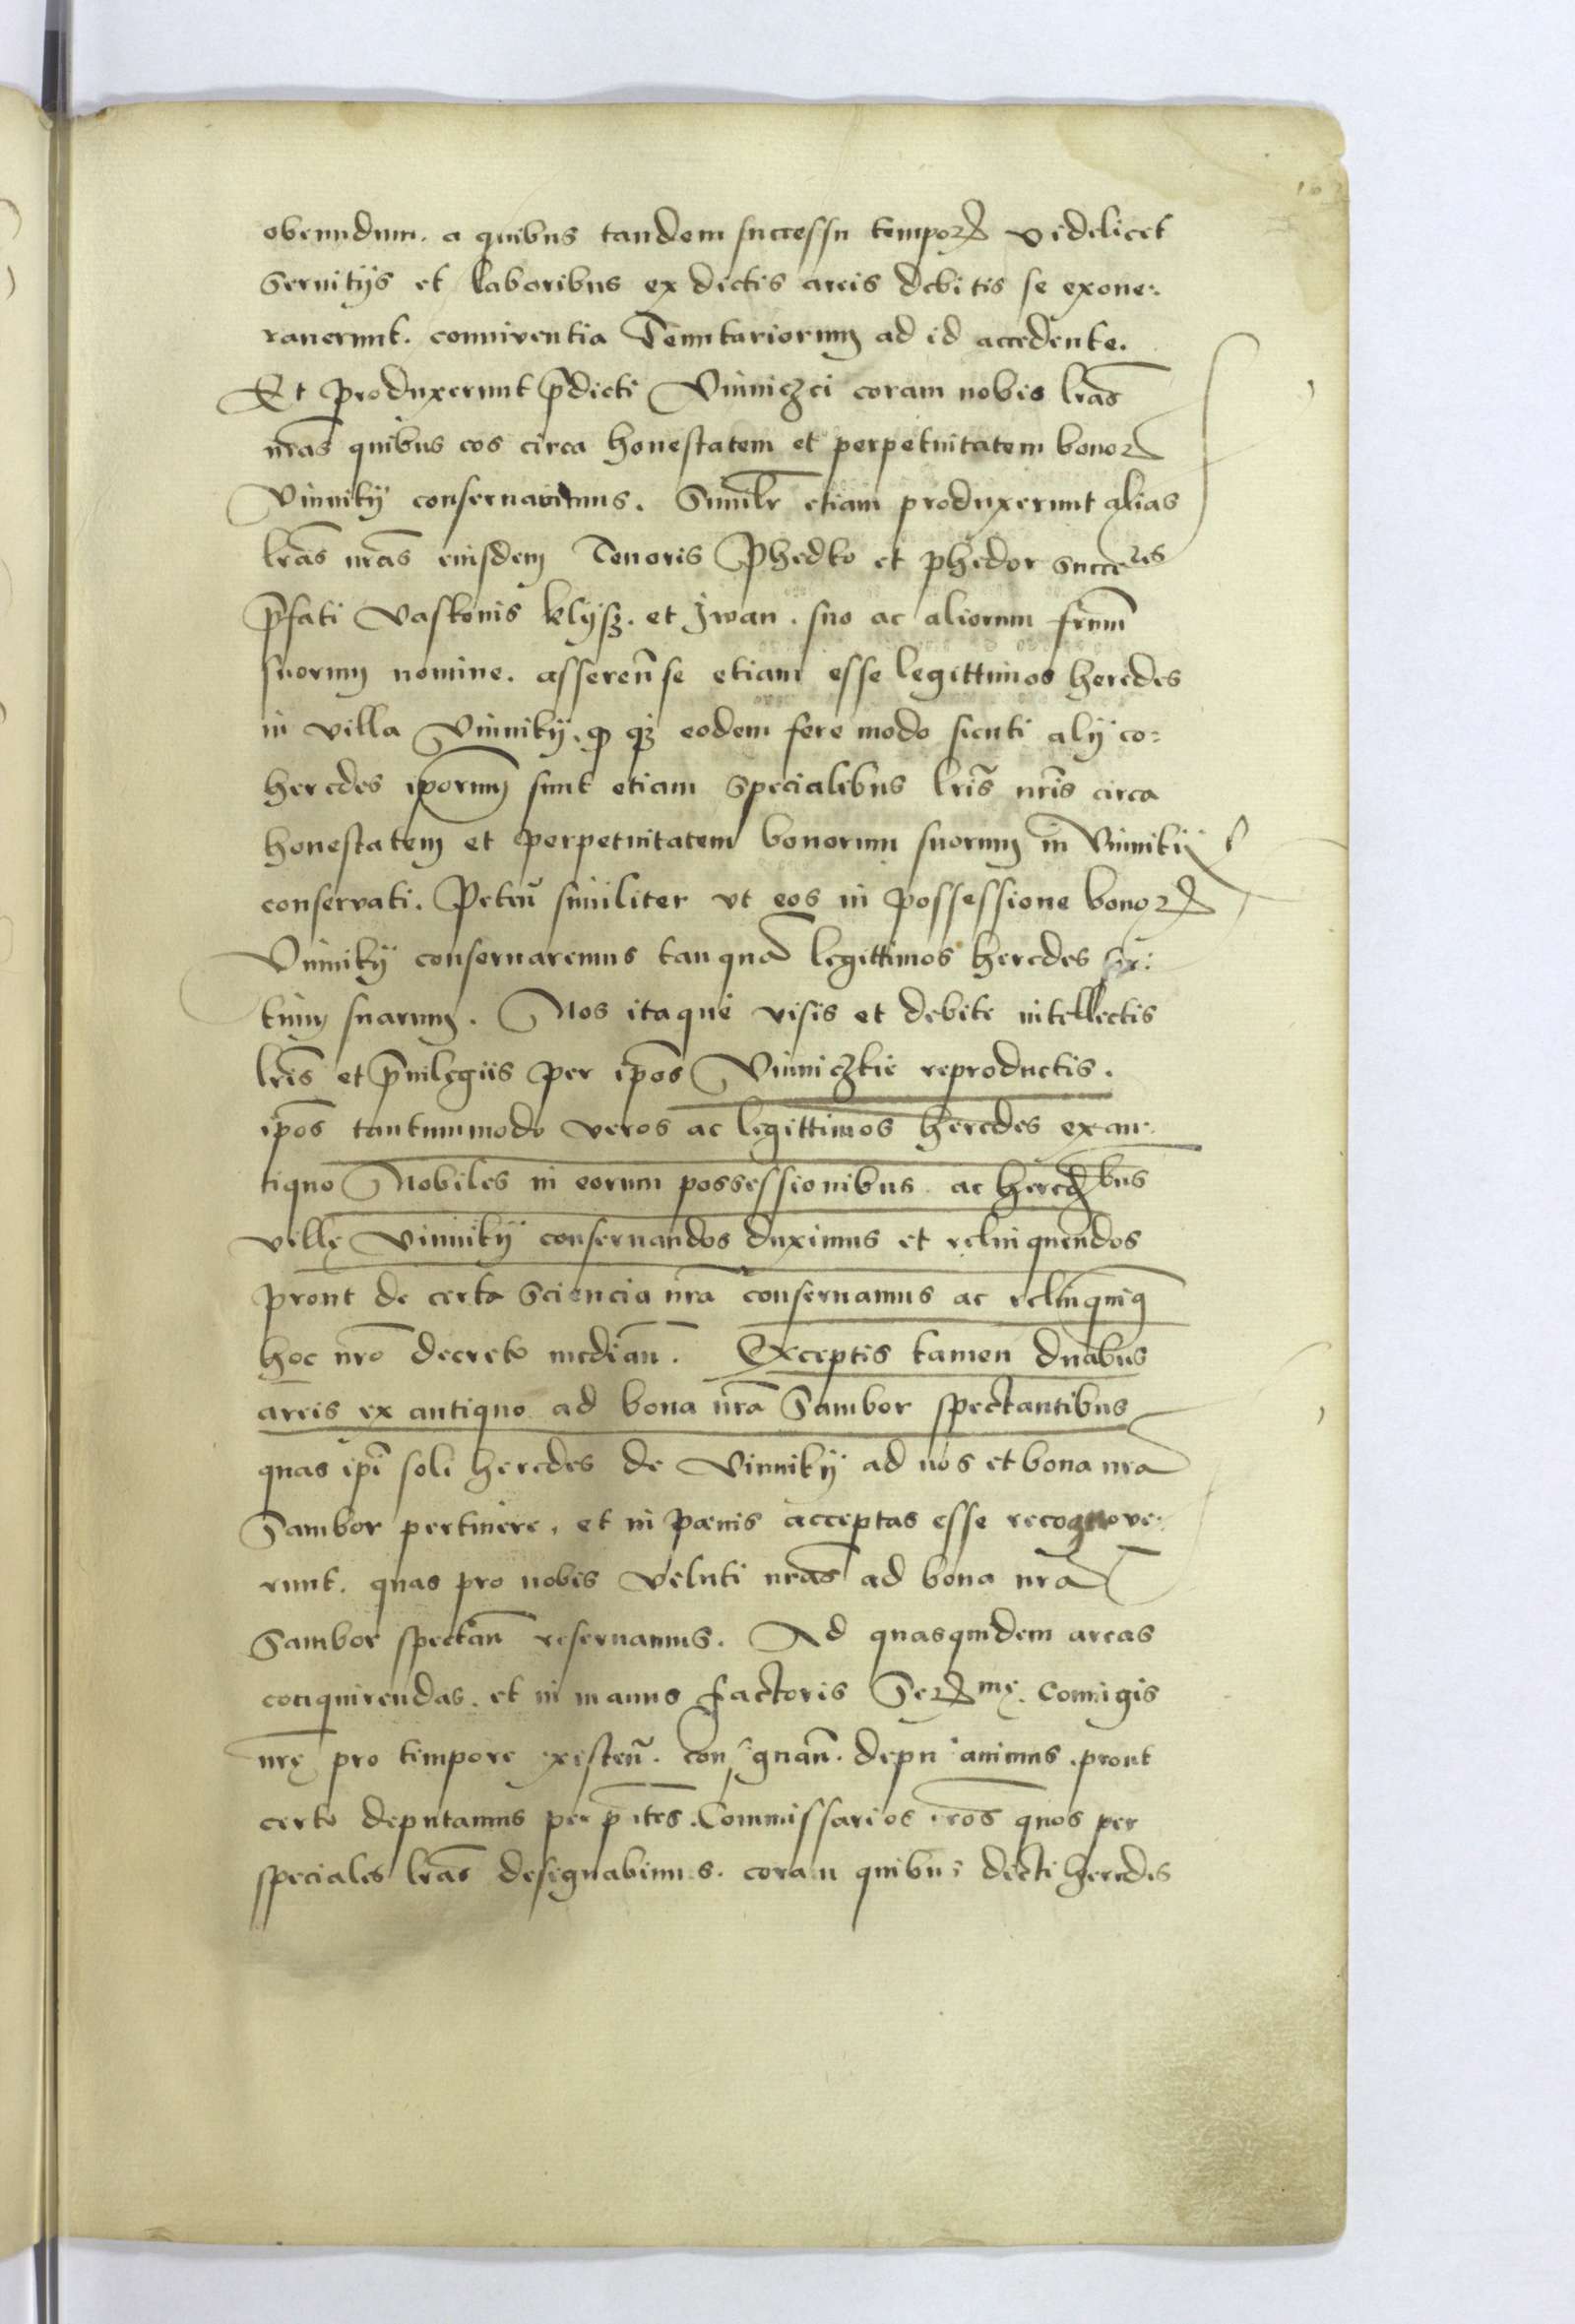 obeundum. a quibus tandem successu tempoꝝ videlicet
Seruitijs et laboribus ex dictis areis debitis se exone:
rauerunt. conniventia Tenutariorum ad id accedente.
Et produxerunt p̄dicti Vinniczci coram nobis lr̄as
nr̄as quibus eos circa honestatem et perpetuitatem bonoꝝ
Vinniky conseruauimus. Simil̄r etiam produxerunt alias
lr̄as nr̄as eiusdem Tenoris Phedko et phedor succeres
p̄fati Vaskonis klysz. et Jwan. suo ac aliorum fr̄um
suorum nomine. asseren̄ se etiam esse legittimos heredes
in villa Vinniky. eodem fere modo sicuti alij co=
heredes ip̄orum sunt etiam Specialibus lr̄is nr̄is circa
honestatem et perpetuitatem bonorum suorum in Vinniky
conservati. Peten̄ similiter vt eos in possessione bonoꝝ
Vinniky conseruaremus tanquā legittimos heredes sor:
tium suarum. Nos itaque visis et debite intellectis
lr̄is et p̄uilegiis per ip̄os Vinniczkie reproductis.
ip̄os tantummodo veros ac legittimos heredes ex an:
tiquo Nobiles in eorum possessionibus. ac heredbus
villę Vinniky conseruandos duximus et relinquendos
prout de certa Sciencia nr̄a conseruamus ac relinquimꝰ
hoc nr̄o decreto median̄. Exceptis tamen duabus
areis ex antiquo ad bona nr̄a Sambor spectantibus
quas ip̄i soli heredes de Vinniky ad nos et bona nr̄a
Sambor pertinere, et in pœnis acceptas esse recognove:
runt. quas pro nobis veluti nr̄as ad bona nr̄a
Sambor spectan̄ reseruamus. Ad quasquidem areas
conquirendas. et in manus factoris Serꝝmę. Coniugis
nr̄ę pro tempore existen̄. consignan̄. deputauimus. prout
certo deputamus per p̄ntes. Commissarios nr̄os quos per
speciales lr̄as designabimus. coram quibus dicti heredes